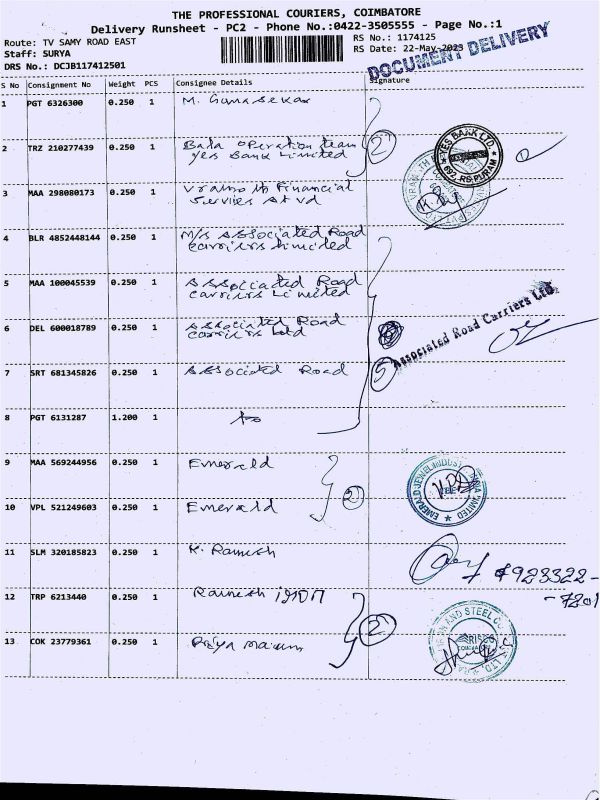 THE PROFESSIONAL COURIERS, COIMBATORE
Delivery Runsheet - PC2 - Phone No.:0422-3505555 - Page No.:1
Route: TV SAMY ROAD EAST
RS No.: 1174125
Staff: SURYA
RS Date: 22-May-2023
DRS No.: DCJB117412501
DOCUMENT DELIVERY
S No Consignment No Weight PCS Consignee Details Signature
1 PGT 6326300 0.250 1 M. Gunasekar
2 TRZ 210277439 0.250 1 Bala operation team
Yes Bank Limited
2
YES BANK LTD.
692, RS.PURAM
3 MAA 298080173 0.250 1 Financial
4 BLR 4852448144 0.250 1 M/s Associated Road
carriers limited
5 MAA 100045539 0.250 1 Associated Road
carriers Limited
6 DEL 600018789 0.250 1 Associated Road
Associated Road Carriers Ltd.
7 SRT 681345826 0.250 1 Associated Road
5
8 PGT 6131287 1.200 1
9 MAA 569244956 0.250 1 Emerald
2
EMERALD JEWEL INDUSTRY INDIA LIMITED
10 VPL 521249603 0.250 1 Emerald
11 SLM 320185823 0.250 1 K. Ramesh
12 TRP 6213440 0.250 1 Ramesh
2
13 COK 23779361 0.250 1 Priya